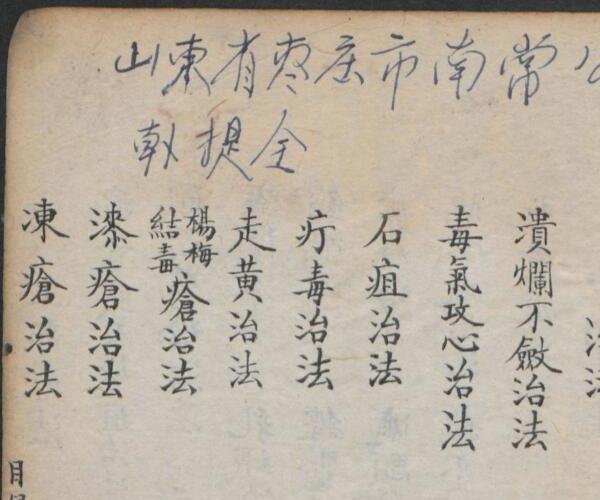 山東有枣庄市南常
提全
潰爛不斂治法
毒氣攻心治法
石疽治法
疔毒治法
走黃治法
楊梅結毒瘡治法
漆瘡治法
凍瘡治法
目